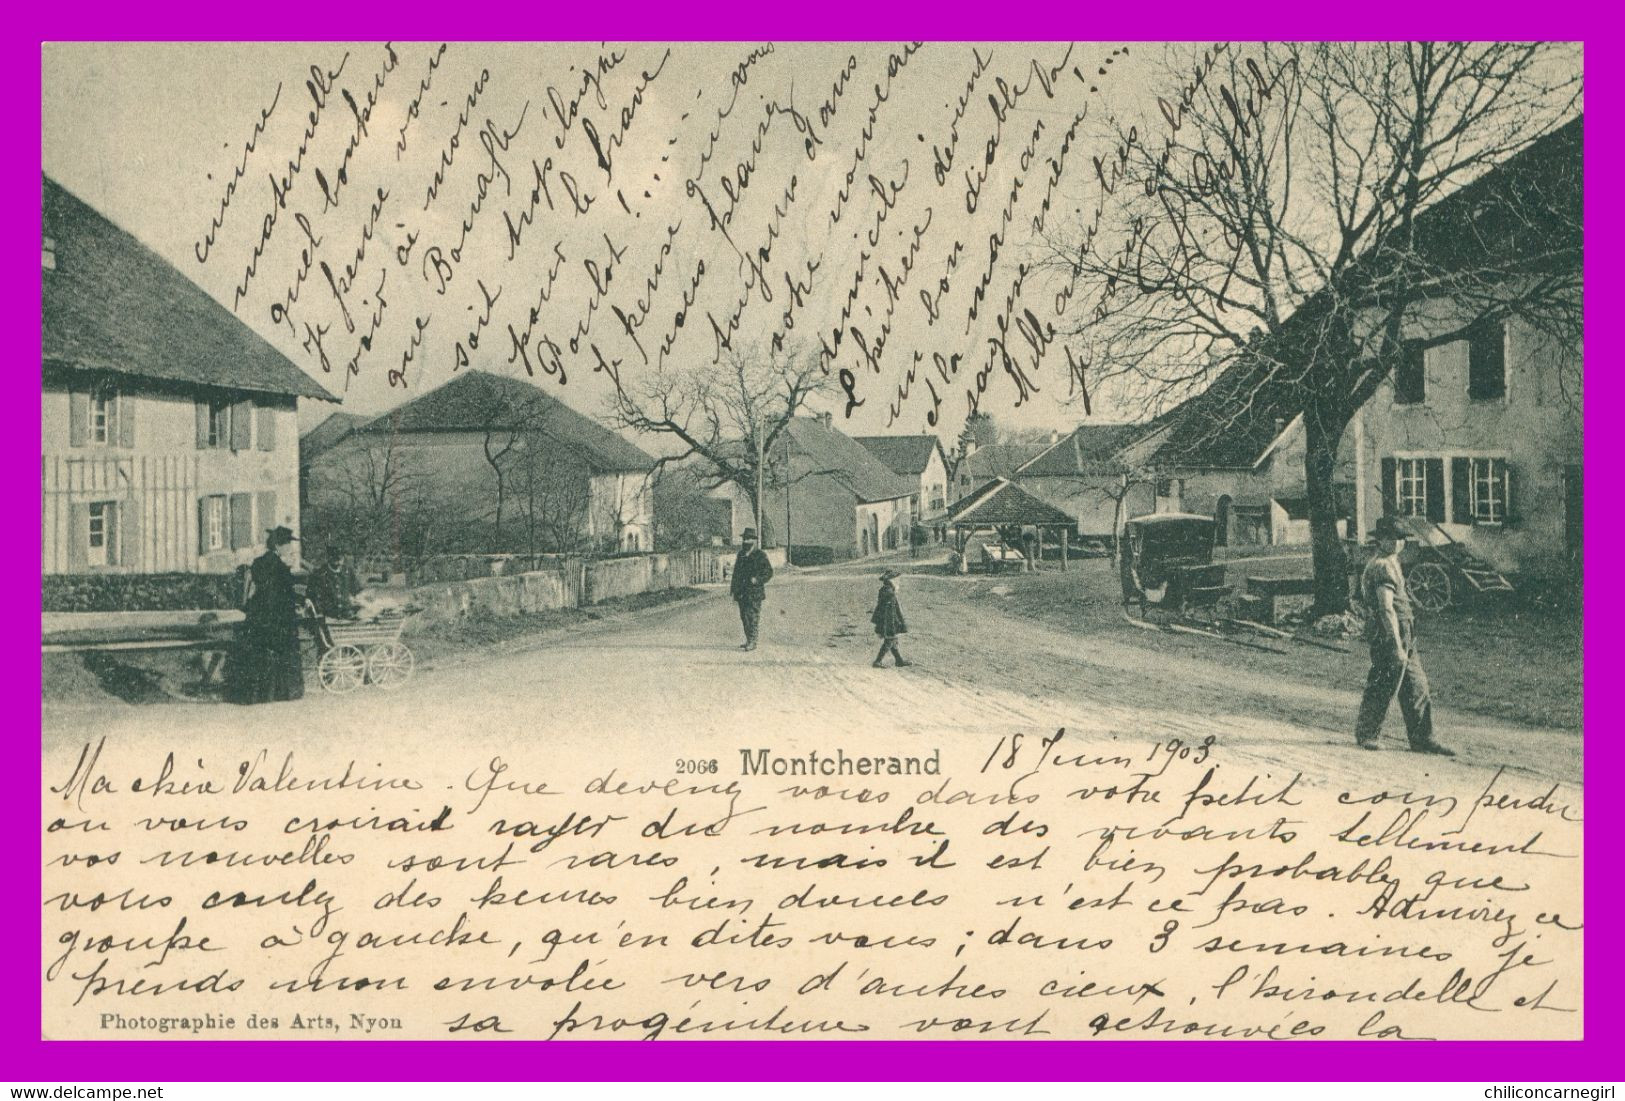 2066 Montcherand 18 Juin 1903.
Ma chère Valentine. Que devenez vous dans votre petit coin perdu
on vous croirait rayer du nombre des vivants tellement
vos nouvelles sont rares, mais il est bien probable que
vous coulez des heures bien douces n'est ce pas. Admirez ce
groupe à gauche, qu'en dites vous; dans 3 semaines je
prends mon envolée vers d'autres cieux, l'hirondelle et
sa progéniture vont retrouvées la
Photographie des Arts, Nyon
cuisine
maternelle
quel bonheur
Je pense vous
voir à moins
que Bonaffe
soit trop éloigné
pour le brave
Poulot!......
Je pense que vous
vous plaisez
toujours dans
votre nouveau
domicile
L'héritière devient
un bon diable
et la maman
sagesse même!....
Mille amitiés
je vous embrasse
chiliconcarnegirl